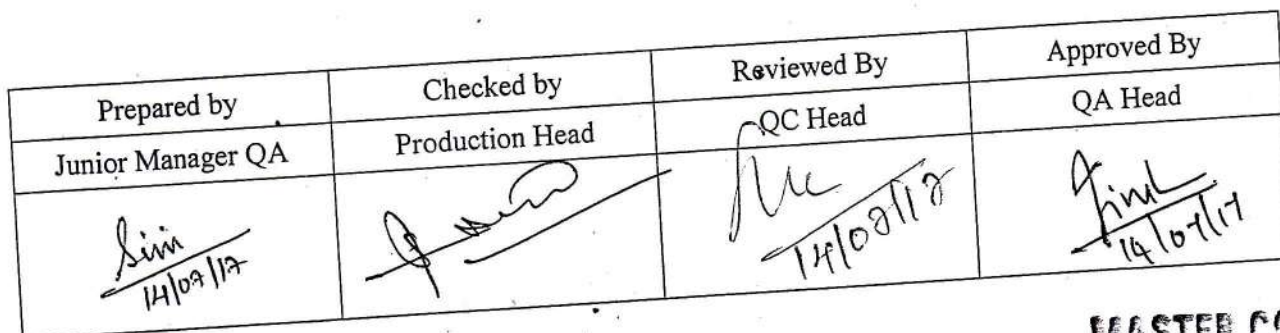 Prepared by Checked by Reviewed By Approved By
Junior Manager QA Production Head QC Head QA Head
Sini
14/07/17 14/07/17 14/07/17
MASTER